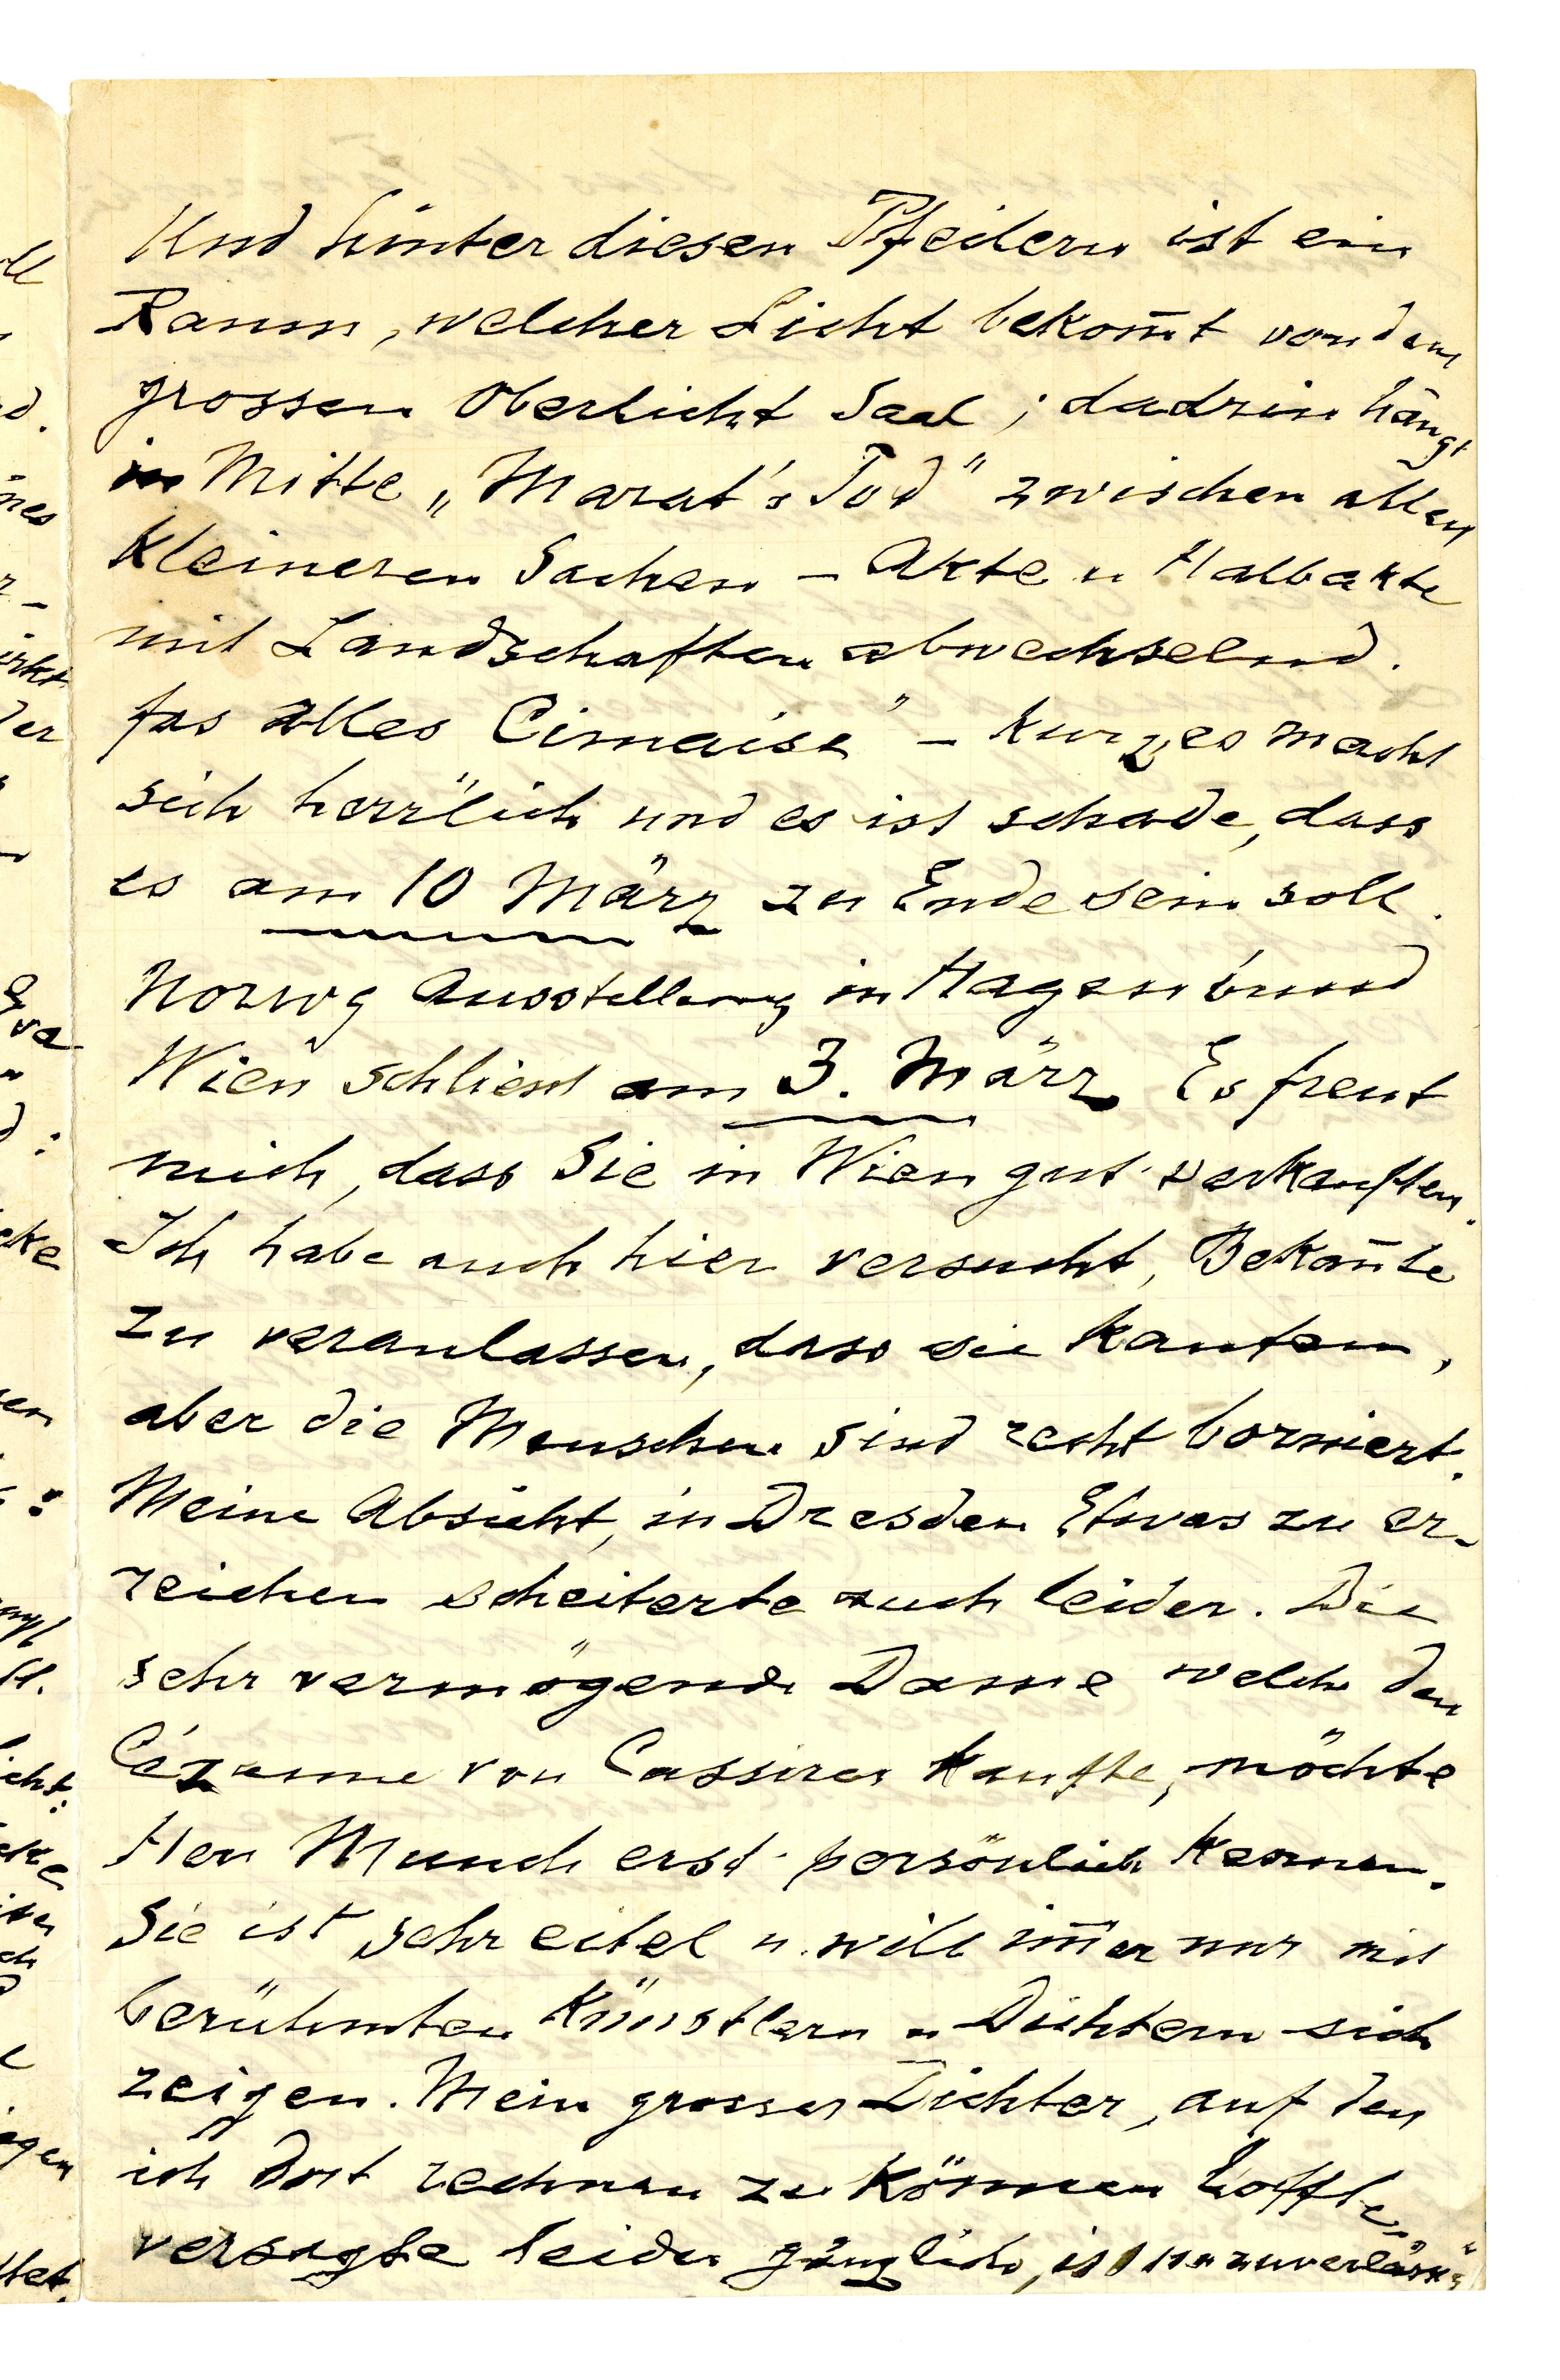 Und hinter diesen Pfeilern ist ein
Raum, welcher Licht bekom̄t von dem
grossen Oberlicht Saal; dadrin hängt
in Mitte „Marat's Tod" zwischen allen
kleineren Sachen – Akte u Halbakte
mit Landschaften abwechselnd.
fas alles Cimaise" – kurz, es macht
sich herrlich und es ist schade, dass
es am 10 März zu Ende sein soll.
Norwg Ausstellung in Hagenbund
Wien schliesst am 3. März Es freut
mich, dass Sie in Wien gut verkauften.
Ich habe auch hier versucht, Bekan̄te
zu veranlassen, dass sie kauften,
aber die Menschen sind recht borniert.
Meine Absicht, in Dresden Etwas zu er-
reichen scheiterte auch leider. Die
sehr vermögende Dame welche den
Cézanne von Cassirer kaufte, möchte
Herr Munch erst persönlich kennen.
Sie ist sehr eitel u. will im̄er nur mit
berühmten Künstlern u Dichtern sich
zeigen. Mein grosser Dichter, auf den
ich dort rechnen zu können hoffte,
versagte leider gänzlich, ist unzuverlässig